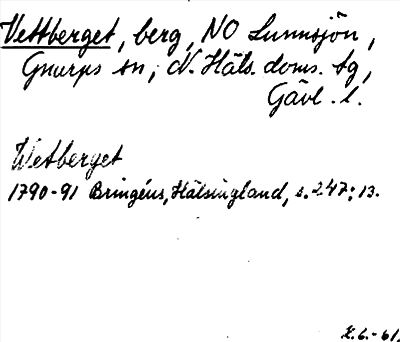 Vettberget, berg, NO Lumnsjön,
Gnarps sn, N. Häls. doms. tg,
Gävl. l.
Wetberget
1790-91 Bringéus, Hälsingland, s. 247: 13.
X.6.-61.